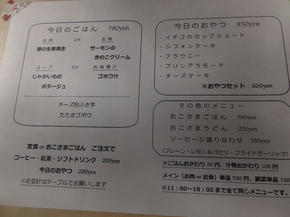 今日のごはん 780yen
お肉 or お魚
豚の生姜焼き サーモンの
きのこクリーム
スープ or お味噌汁
じゃがいもの ゴボウ汁
ポタージュ
チーズ粉ふき芋
たたきゴボウ
定食 or おこさまごはん ご注文で
コーヒー・紅茶・ソフトドリンク 200yen
今日のおやつ 200yen
※お会計はテーブルでお願いします
今日のおやつ 350yen
・イチゴのカップショート
・シフォンケーキ
・ブラウニー
・プリンアラモード
・チーズケーキ
※おやつセット 600yen
その他のメニュー
おこさまごはん 580yen
おこさまうどん 350yen
ソーセージ盛り合わせ 580yen
(プレーン・レモン＆パセリ・フライドガーリック)
※ごはんおかわり 50円、汁物おかわり 100円
メイン（お肉 or お魚）単品 550円、副菜単品 150円
※11：00～18：00まで全て同じメニューです。